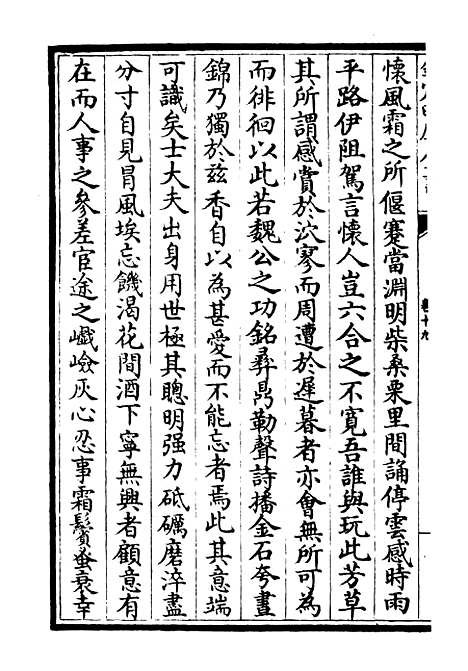 懷風霜之所偃蹇當淵明柴桑栗里間誦停雲感時雨
平路伊阻駕言懷人豈六合之不寛吾誰與玩此芳草
其所謂感賞於泬寥而周遭於遲暮者亦會無所可為
而徘徊以此若魏公之功銘彞鼎勒聲詩播金石夸晝
錦乃獨於兹香自以為甚愛而不能忘者焉此其意端
可識矣士大夫出身用世極其聰明强力砥礪磨淬盡
分寸自見冐風埃忘饑渴花間酒下寧無興者顧意有
在而人事之參差宦途之巇嶮灰心忍事霜鬢蚤衰幸
卷十九